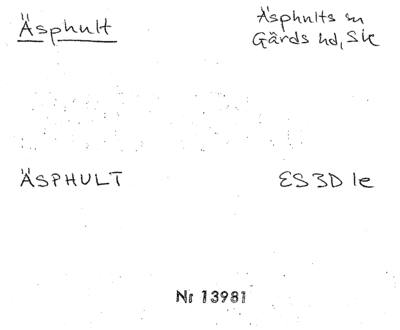 Äsphult
Äsphults sn
Gärds hd, Sk
ÄSPHULT
ES 3D 1e
Nr 13981